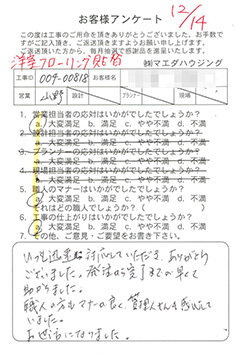 お客様アンケート
12/14
この度は工事のご用命を頂きありがとうございました。お手数で
すがご記入頂き、ご返送頂きますようお願い申し上げます。
ご返送頂いた方から、毎月抽選で感謝品を進呈いたします。
洋室フローリング貼替
㈱マエダハウジング
工事ID
009-00818
お客様名
営業
山野
設計
プランナー
現場
1. 営業担当者の応対はいかがでしたでしょうか？
a. 大変満足 b. 満足 c. やや不満 d. 不満
2. 設計担当者の応対はいかがでしたでしょうか？
a. 大変満足 b. 満足 c. やや不満 d. 不満
3. プランナーの応対はいかがでしたでしょうか？
a. 大変満足 b. 満足 c. やや不満 d. 不満
4. 現場担当者の応対はいかがでしたでしょうか？
a. 大変満足 b. 満足 c. やや不満 d. 不満
5. 職人のマナーはいかがでしたでしょうか？
a. 大変満足 b. 満足 c. やや不満 d. 不満
それはどの職人でしょうか？（ ）
6. 工事の仕上がりはいかがでしたでしょうか？
a. 大変満足 b. 満足 c. やや不満 d. 不満
7. その他、ご意見・ご要望をお書き下さい。
いつも迅速に対応していただき、ありがとう
ございました。発注から完了までの早くて
助かりました。
職人の方もマナーの良く、管理人さんも感心して
いました。
お世話になりました。